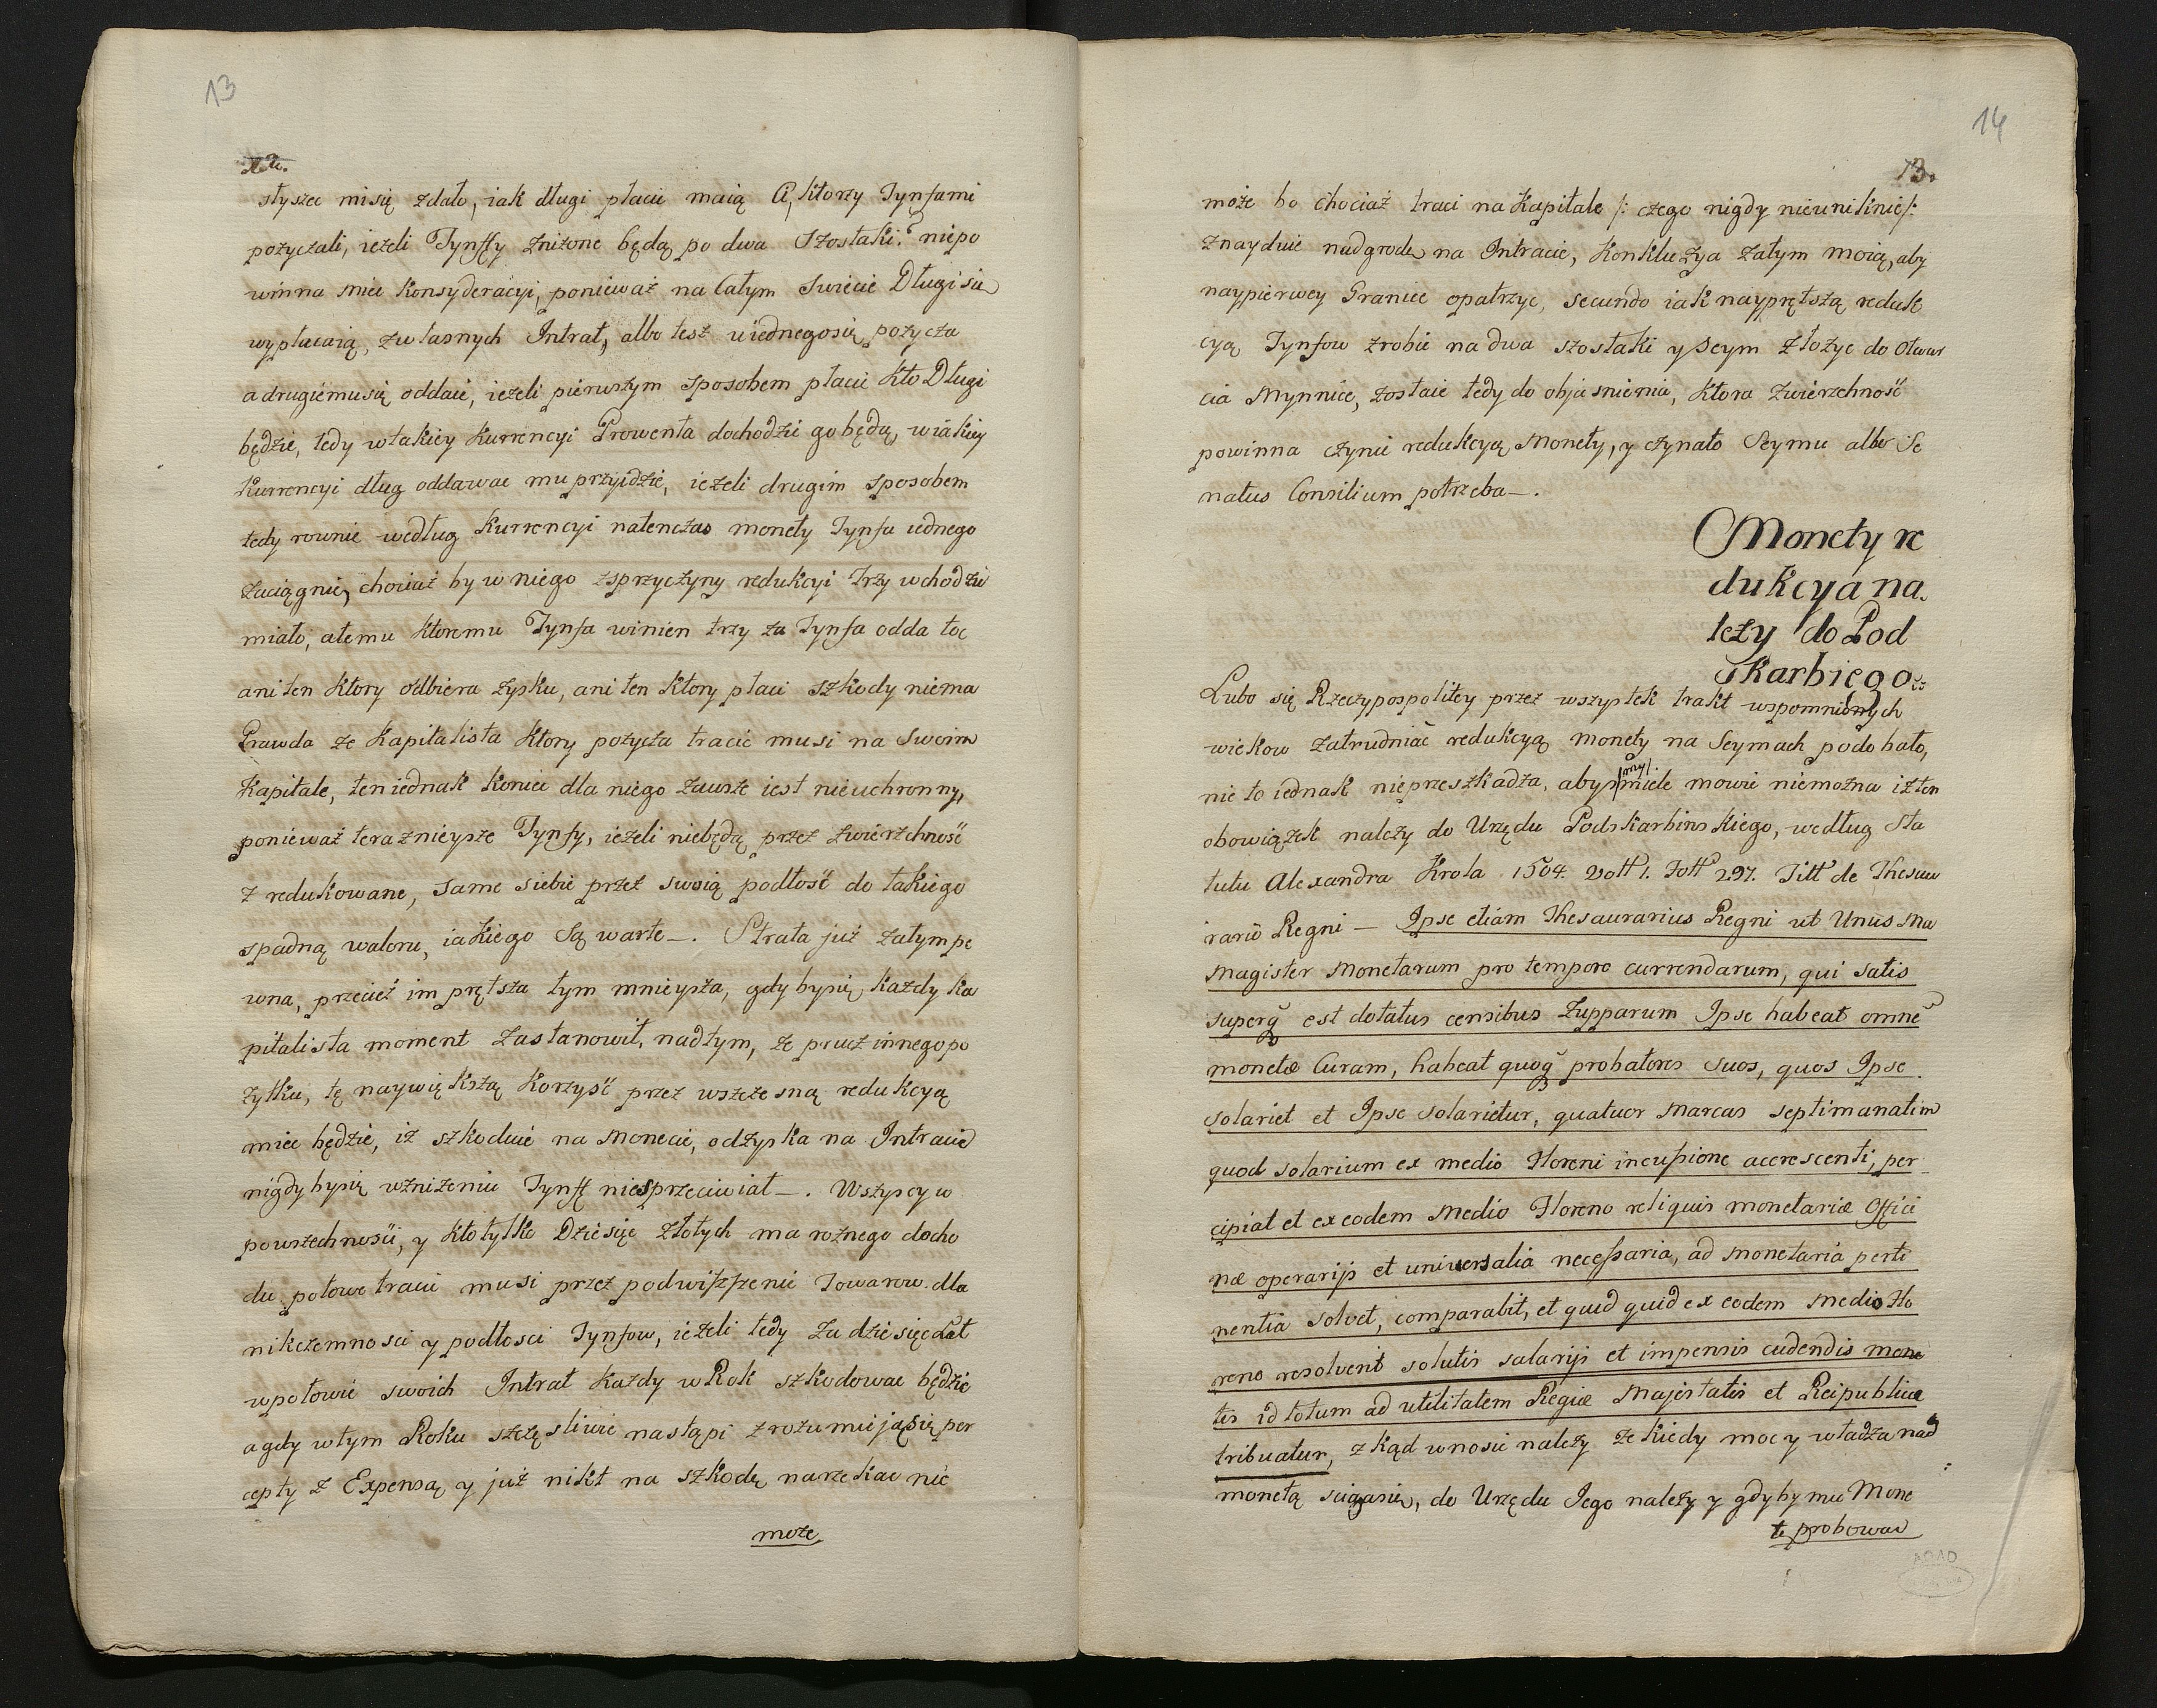 13
12.
słyszec misię zdało, iak długi płacic maią Ci, ktorzy Tynfami
pożyczali, ieżeli Tynffy zniżone będą po dwa Szostaki? niepo
winna miec Konsyderacyi, ponieważ na Całym Swiecie Długi się
wypłacaią, zwłasnych Intrat, albo tesz uiednegosię pożycza
a drugiemusię oddaie, ieżeli pierwszym sposobem płacic kto Długi
będzie, tedy wtakiey Kurrencyi Prowenta dochodzic go będą, wiakiey
Kurrencyi dług oddawac mu przyidzie, ieżeli drugim sposobem
tedy rownie według Kurrencyi natenczas monety Tynfa iednego
zaciągnie, chociaż by w niego zsprzyczyny redukcyi trzy wchodzic
miało, atemu ktoremu Tynfa winien trzy za Tynfa odda toc
ani ten ktory odbiera zysku, ani ten ktory płaci szkody niema
Prawda że Kapitalista ktory pożycza tracić musi na Swoim
Kapitale, ten iednak koniec dla niego zawsze iest nieuchronny,
ponieważ teraznieysze Tynfy, ieżeli niebędą przez zwierzchność
z redukowane, same siebie przez swoią podłość do takiego
spadną waloru, iakiego Są warte_. Strata już zatym pe
wna, przecież im prętsza tym mnieysza, gdy bysię każdy ka
pitalista moment zastanowił, nadtym, że procz innego po
żytku, tę naywiększą korzyść przez wszczesną redukcyą
miec będzie, iż szkoduic na Monecie, odzyska na Intracie
nigdy bysię wzniżeniu Tynff niesprzeciwiał_. Wszyscy w
powszechności, y kto tylko Dziesięc Złotych ma rożnego docho
du połowe tracic musi przez podwiższenie Towarow dla
nikczemnosci y podłosci Tynfow, ieżeli tedy za dziesięc Lat
wpołowie swoich Intrat każdy w Rok szkodowac będzie
a gdy wtym Roku szczęsliwie nastąpi zrozumieją się per
cepty z Expensą y już nikt na szkodę narzekac nie
może
14
13.
może bo chociaż traci na Kapitale /: czego nigdy nieuniknie /:
znayduie nadgrodę na Intracie, Konkluzya zatym moią, aby
naypierwey Granice opatrzyc, secundo iak nayprętszą reduk
cyą Tynfow zrobic na dwa szostaki y Seym złożyc do Otwar
cia Mynnice, zostaie tedy do objasnienia, ktora Zwierzchność
powinna czynic redukcyą Monety, y czynato Seymu albo Se
natus Consilium potrzeba_.
Monety re
dukcya na.
leży do Pod
skarbiego.
Lubo się Rzeczypospolitey przez wszystek trakt wspomnionych
wiekow zatrudniać redukcyą monety na Seymach podobało,
nie to iednak nieprzeszkadza, abysmy smiele mowic niemożna iż ten
obowiązek należy do Urzędu Podskarbinskiego, według Sta
tutu Alexandra Krola 1504. Voll 1. Foll 297. Titt de Thesau
rario Regni _ Ipse etiam Thesaurarius Regni ut Unus Ma
Magister Monetarum pro tempore currendarum, qui satis
superq est dotatus censibus Zupparum Ipse habeat omnē
monetæ Curam, habeat quoq probatores suos, quos Ipse
solariet et Ipse solarietur, quatuor Marcas septimanatim
quod solarium ex medio Floreni incusione accrescenti, per
cipiat et ex eodem Medio Floreno reliquis monetariæ Offici
næ operarijs et universalia necessaria, ad monetaria perti
nentia solvet, comparabit, et quid quid ex eodem Medio Flo
reno resolverit solutis salarijs et impensis cudendis mone
tis id totum ad utilitatem Regiæ Majestatis et Reipublicæ
tribuatur, z kąd wnosic należy że kiedy moc y władza nad
monetą sciągasię, do Urzędu Jego należy y gdyby mu Mone
te probowac
AGAD